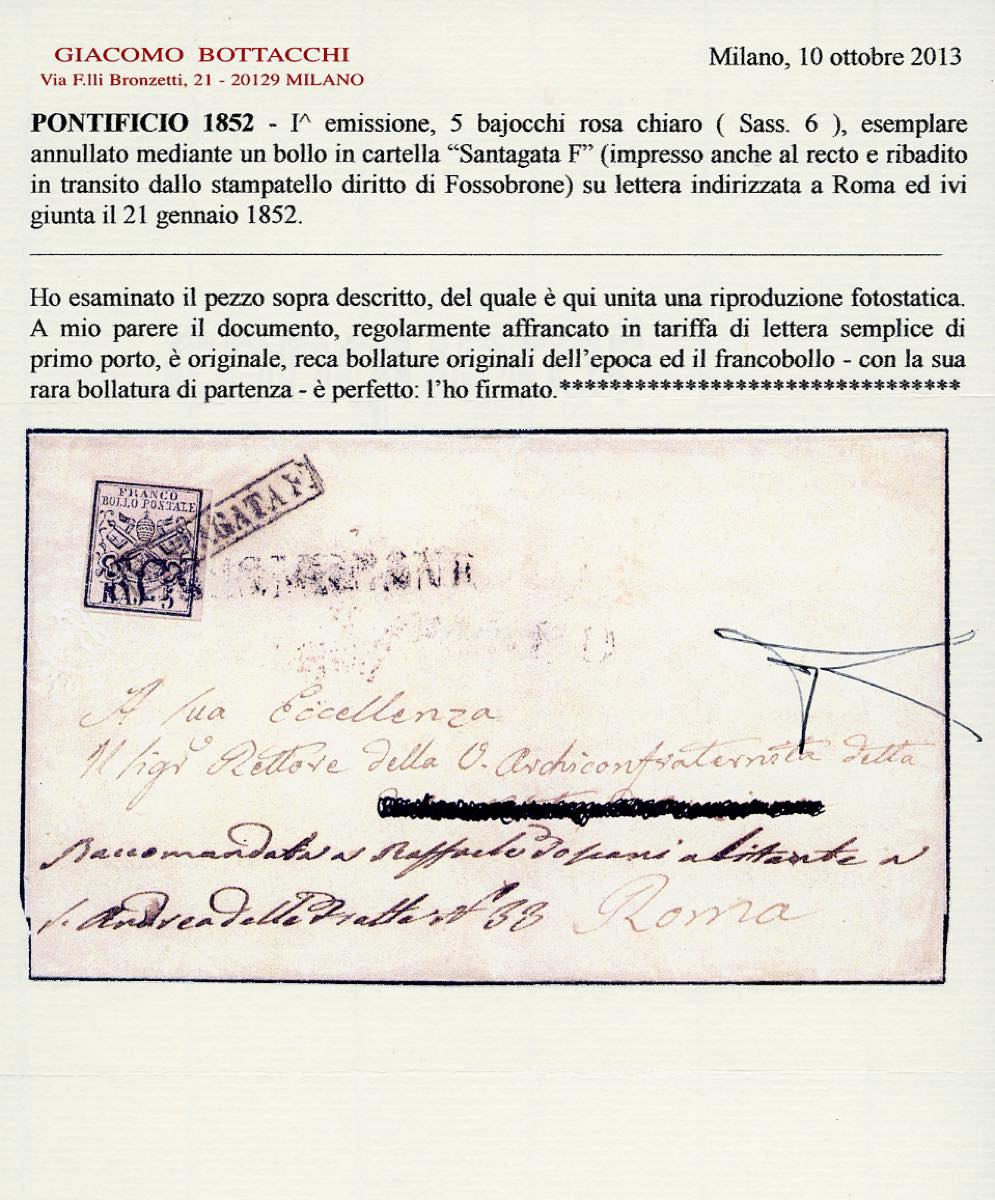 GIACOMO BOTTACCHI
Via F.lli Bronzetti, 21 - 20129 MILANO
Milano, 10 ottobre 2013
PONTIFICIO 1852 - I^ emissione, 5 bajocchi rosa chiaro ( Sass. 6 ), esemplare
annullato mediante un bollo in cartella “Santagata F” (impresso anche al recto e ribadito
in transito dallo stampatello diritto di Fossobrone) su lettera indirizzata a Roma ed ivi
giunta il 21 gennaio 1852.
Ho esaminato il pezzo sopra descritto, del quale è qui unita una riproduzione fotostatica.
A mio parere il documento, regolarmente affrancato in tariffa di lettera semplice di
primo porto, è originale, reca bollature originali dell’epoca ed il francobollo - con la sua
rara bollatura di partenza - è perfetto: l’ho firmato.********************************
FRANCO
BOLLO POSTALE
GATA F
5
A sua Eccellenza
Il sigr Rettore della V. Archiconfraternita della
Raccomandata a Raffaele abitante a
S. Andrea delle Fratte N° 33
Roma